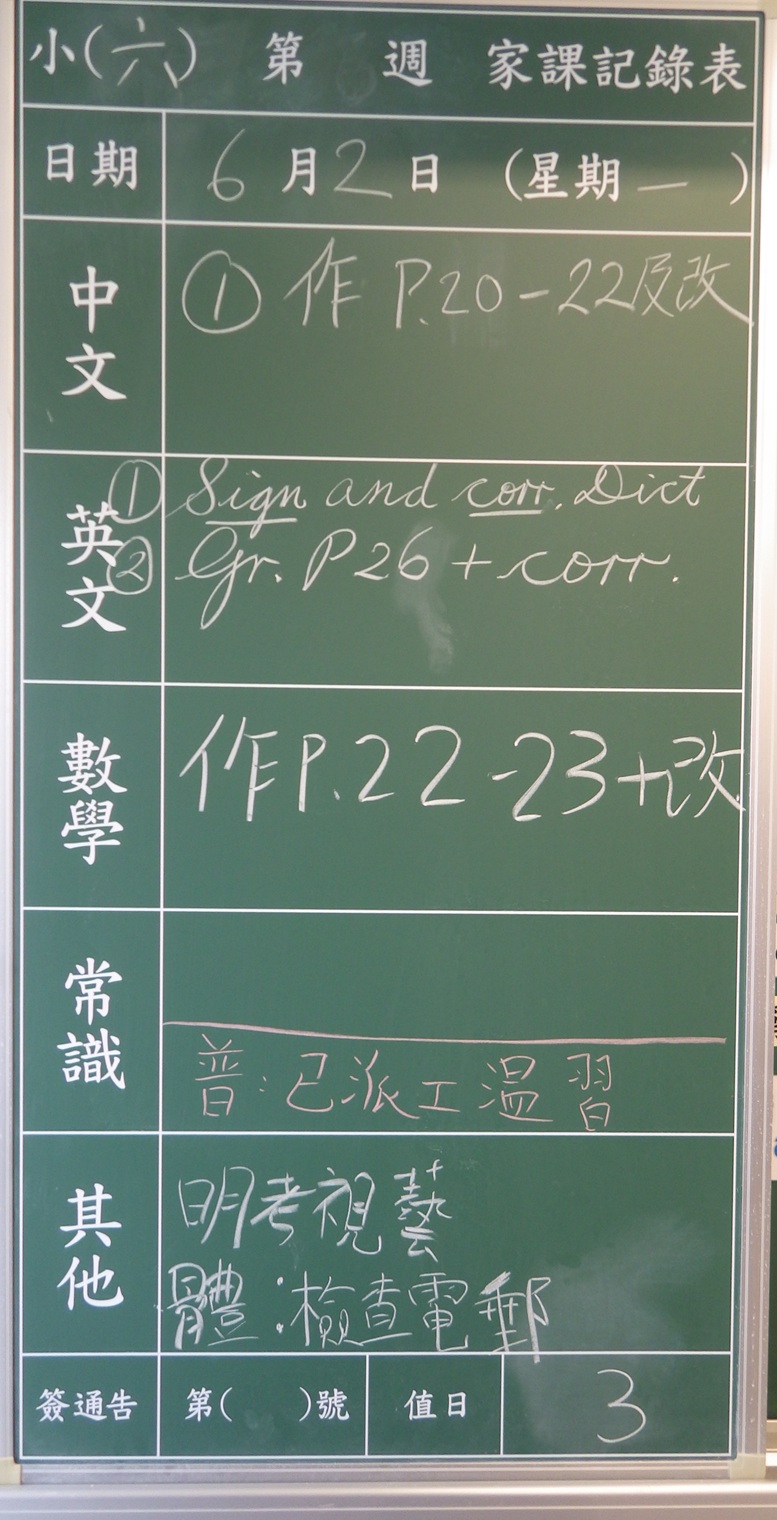 小(六) 第 週 家課記錄表
日期 6月2日 (星期一)
中文 ① 作 P.20-22及改
英文 ① Sign and corr. Dict
② Gr. P26 + corr.
數學 作P.22-23+改
常識
普:已派工溫習
其他 明考視藝
體:檢查電郵
簽通告 第( )號 值日 3